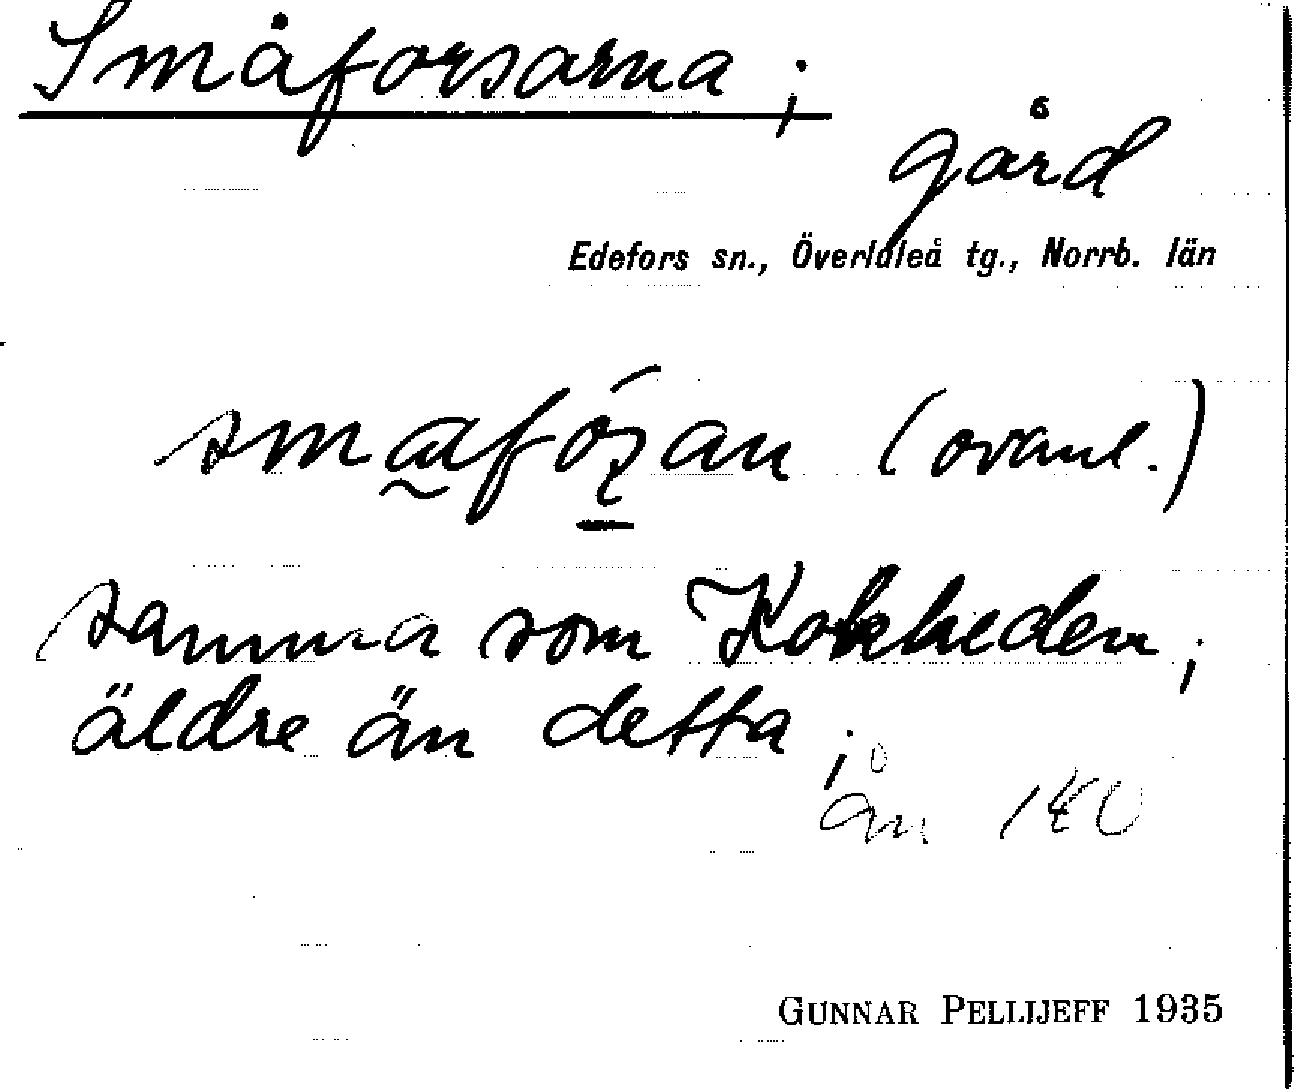 Småforsarna;
gård
Edefors sn., Överluleå tg., Norrb. län
(ovanl.)
samma som Kokheden;
äldre än detta;
ån 140
GUNNAR PELLIJEFF 1935